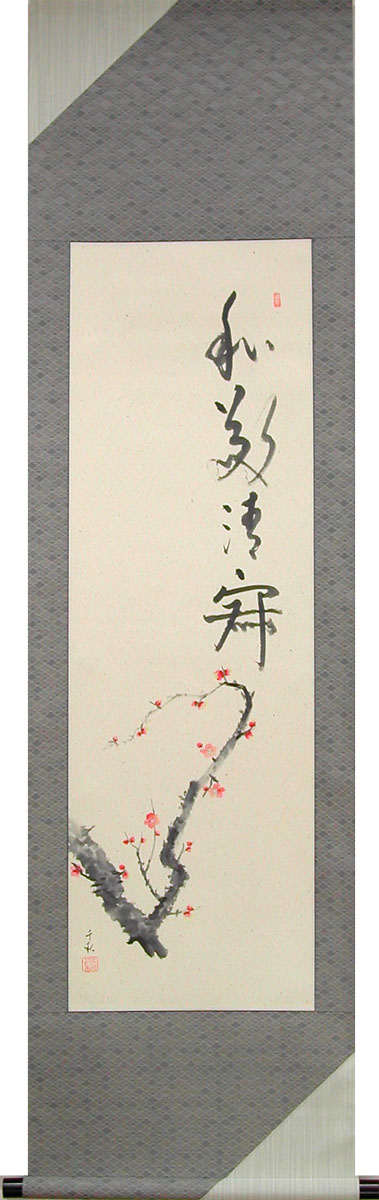 和敬清寂
千秋